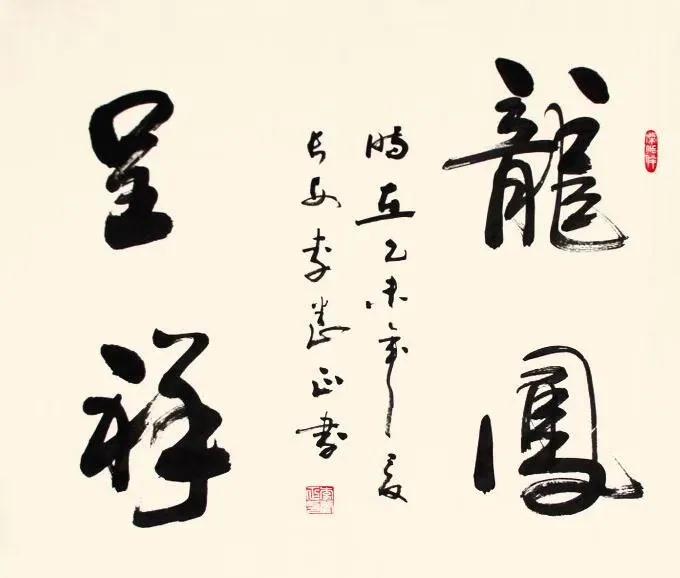 龍鳳
時在乙未年夏
長安李正書
呈祥